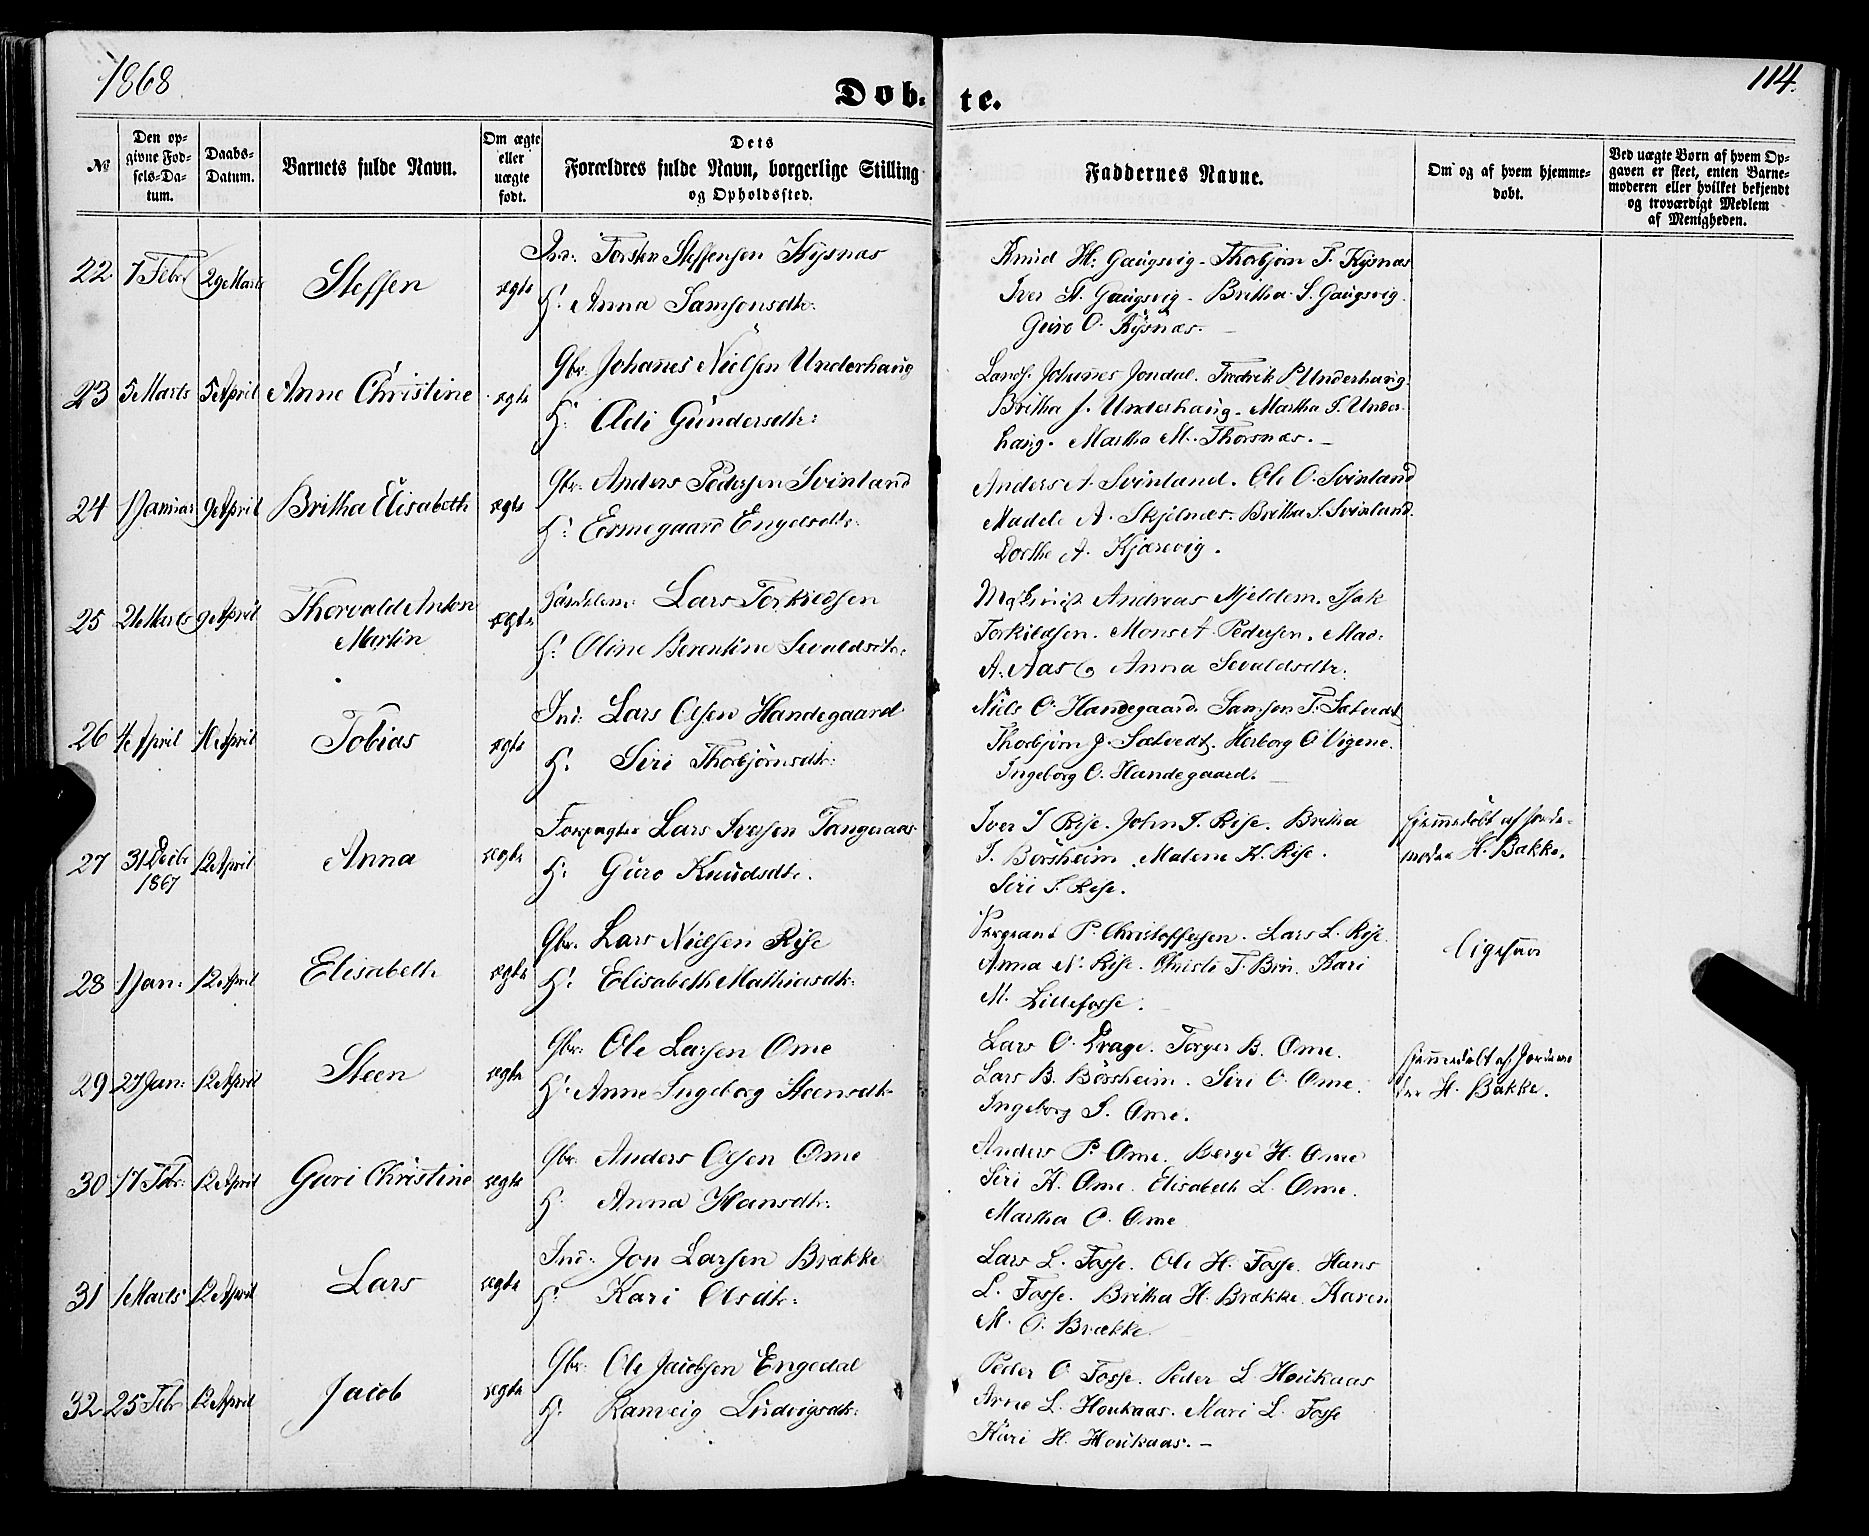 1868
114.
Døb- te.
№
Den op-
givne Fød-
sels-Da-
tum.
Daabs-
Datum.
Barnets fulde Navn.
Om ægte
eller
uægte
født.
Dets
Forældres fulde Navn, borgerlige Stilling
og Opholdssted.
Faddernes Navne.
Om og af hvem hjemme-
døbt.
Ved uægte Børn af hvem Op-
gaven er skeet, enten Barne-
moderen eller hvilket bekjendt
og troværdigt Medlem
af Menigheden.
22 7 Febr 29 Marts Steffen ægte
Torsten Steffensen Kysnæs
H: Anna Samsonsdtr:
Knud H: Gaugsvig. Thorbjørn T. Kysnæs
Iver H. Gaugsvig. Britha S. Gaugsvig.
Guro O. Kysnæs. –
23 5 Marts 5 April Anne Christine ægte
Gbr. Johanes Nielsen Underhaug
H: Adi Gundersdtr:
Johanes Jondal. Fredrik P Underhaug.
Britha J. Underhaug. Martha T. Under-
haug. Martha M. Thorsnæs. –
24 1 Januar 9 April Britha Elisabeth ægte
Gbr. Anders Pedersen Svinland
H: Ermegaard Engelsdtr:
Anders A. Svinland. Ole O. Svinland
Madele A. Skjelnæs. Britha S. Svinland.
Dorthe A. Kjærevig.
25 21 Marts 9 April Thorvald Anton
Martin
ægte
Lars Torkildsen
H: Oline Berentine Sevaldsdtr:
Andreas Mjeldem. Isak
Torkildsen. Mons A. Pedersen. Mad:
A. Aas & Anna Sevaldsdtr.
26 4 April 11 April Tobias ægte
Ind: Lars Olsen Handegaard
H: Siri Thorbjørnsdtr:
Niels O. Handegaard. Samson T. Sætvedt
Thorbjørn J. Sætvedt. Herborg O Vigene.
Ingeborg O. Handegaard. –
27 31 Decbr
1867
12 April Anna ægte
Forpagter Lars Iversen Tangeraas
H: Guro Knudsdtr.
Iver I Rise. John I. Rise. Britha
I. Børsheim. Malene K. Rise.
Siri I. Rise.
hjemmedøbt af Jorde-
moder H. Bakke.
28 1 Jan: 12 April Elisabeth ægte
Gbr. Lars Nielsen Rise
H: Elisabeth Mathiasdtr:
Sergeant P. Christoffersen. Lars L. Rise.
Anna N. Rise. Christi T. Bru. Kari
M. Lillefosse.
ligesaa
29 27 Jan: 12 April Steen ægte
Gbr: Ole Larsen Ome
H: Anne Ingeborg Steensdtr
Lars O. Drage. Torger B. Ome.
Lars B. Børsheim. Siri O. Ome.
Ingeborg S. Ome.
hjemmedøbt af Jordemo
der H. Bakke.
30 17 Febr: 12 April Guri Christine ægte
Gbr. Anders Olsen Ome
H: Anna Hansdtr:
Anders P. Ome. Berge H. Ome
Siri H. Ome. Elisabeth L. Ome.
Martha O. Ome
31 1 Marts 12 April Lars ægte
Ind: Jon Larsen Brække
H: Kari Olsdtr:
Lars L. Fosse. Ole H. Fosse. Hans
L. Fosse. Britha H. Brække. Karen
M. O. Brække.
32 25 Febr 12 April Jacob ægte
Gbr: Ole Jacobsen Engedal
H: Ranveig Ludvigsdtr:
Peder O. Fosse. Peder L. Houkaas
Arne L. Houkaas. Mari L. Fosse
Kari H. Houkaas. –